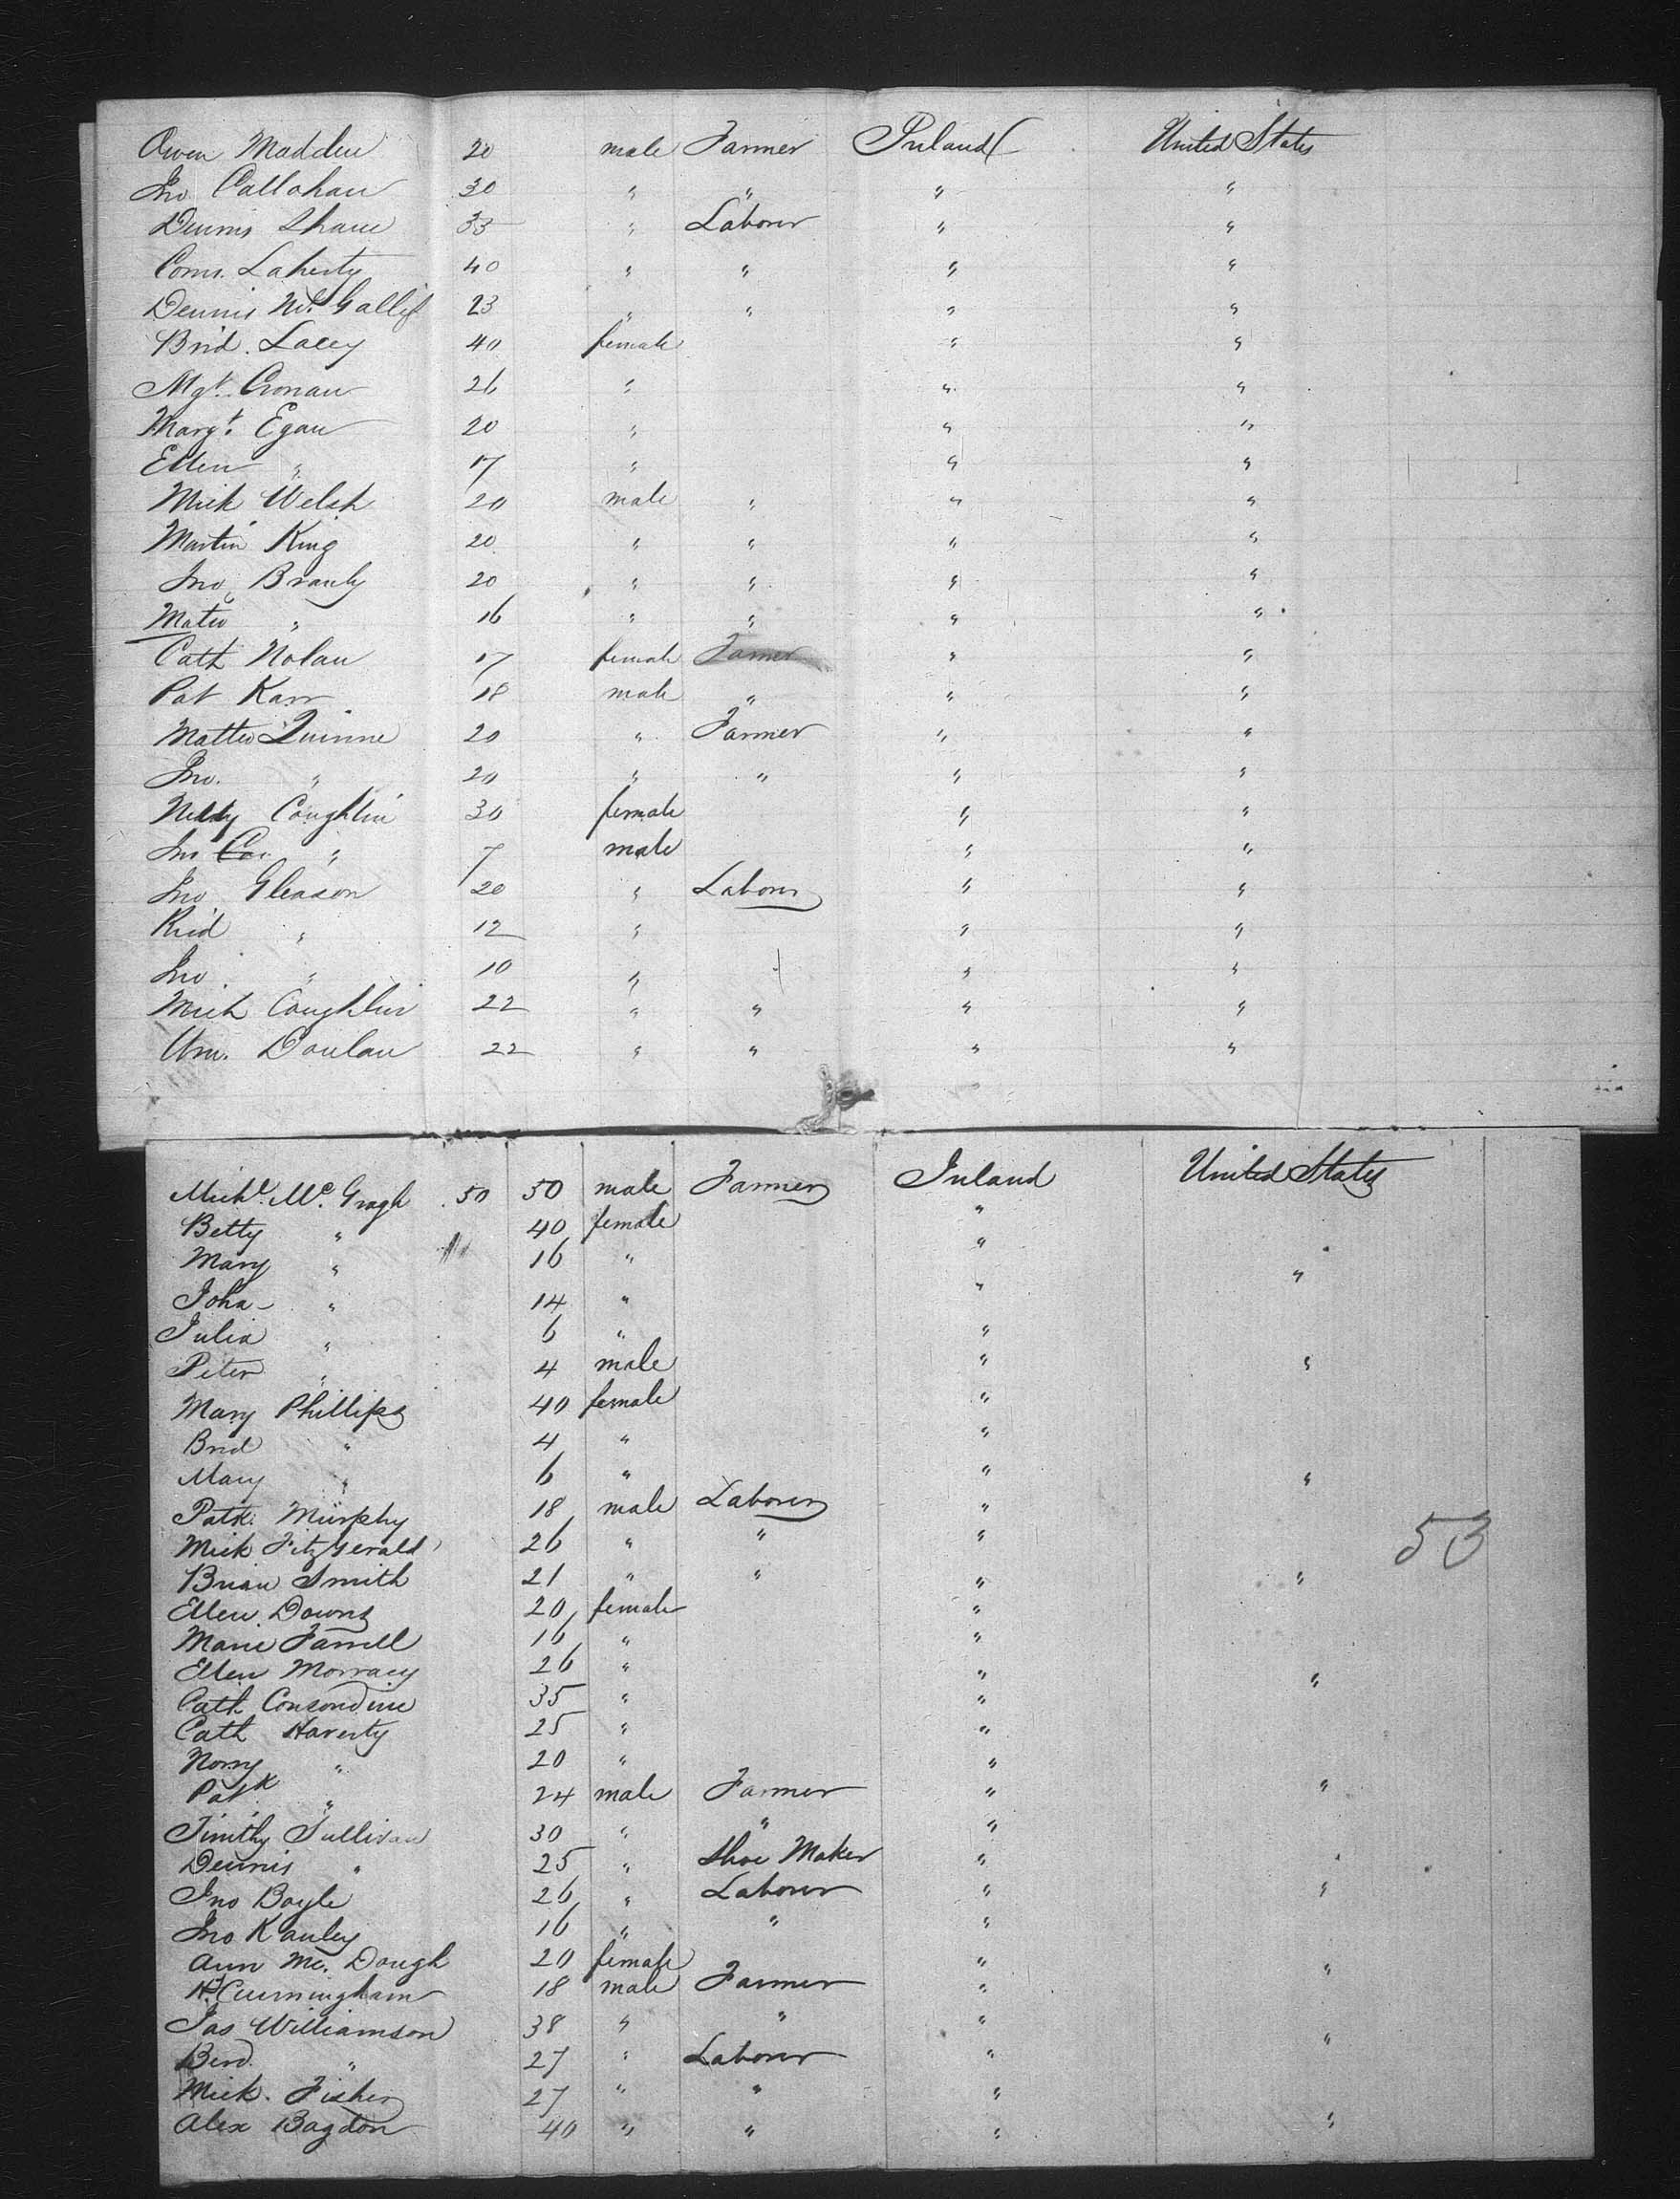 Owen Madden 20 male Farmer Ireland United States
Jno Callahan 30 " " " "
Dennis Shaue 35 " Laborer " "
Corns. Laherty 40 " " " "
Dennis Mc. Gallif 23 " " " "
Brid. Lacey 40 female " "
Mgt. Cronan 26 " " "
Margt. Egan 20 " " "
Ellen " 17 " " "
Mick Welsh 20 male " " "
Martin King 20 " " " "
Jno. Branly 20 " " " "
Matw " 16 " " " "
Cath Nolan 17 female Farmer " "
Pat Karr 18 male " " "
Mattw Quinne 20 " Farmer " "
Jno. " 20 " " " "
Nelly Coughlin 30 female " "
Jno Co " 7 male " "
Jno Gleason 20 " Laborer " "
Ricd " 12 " " "
Jno. " 10 " " "
Mich Coughlin 22 " " " "
Wm. Donlan 22 " " " "
Michl. Mc. Gragh 50 50 male Farmer Ireland United States
Betty " 40 female "
Mary " 16 " "
Joha- " 14 " " "
Julia " 6 " "
Peter " 4 male " "
Mary Phillips 40 female "
Brid " 4 " "
Mary " 6 " " "
Patk. Murphy 18 male Laborer "
Mick Fitzgerald 26 " " "
53
Brian Smith 21 " " " "
Ellen Downs 20 female "
Marie Farrell 16 " "
Ellen Morracy 26 " " "
Cath Consondine 35 " "
Cath Haverty 25 " "
Norry " 20 " "
Patk " 24 male Farmer " "
Timithy Sullivan 30 " " "
Dennis " 25 " Shoe Maker "
Jno Boyle 26 " Laborer " "
Jno Kauley 16 " " "
Ann Mc. Dough 20 female "
H. Cunningham 18 male Farmer " "
Jas Williamson 38 " " "
Bend. " 27 " Laborer " "
Mick. Fisher 27 " " "
Alex Bagdon 40 " " " "